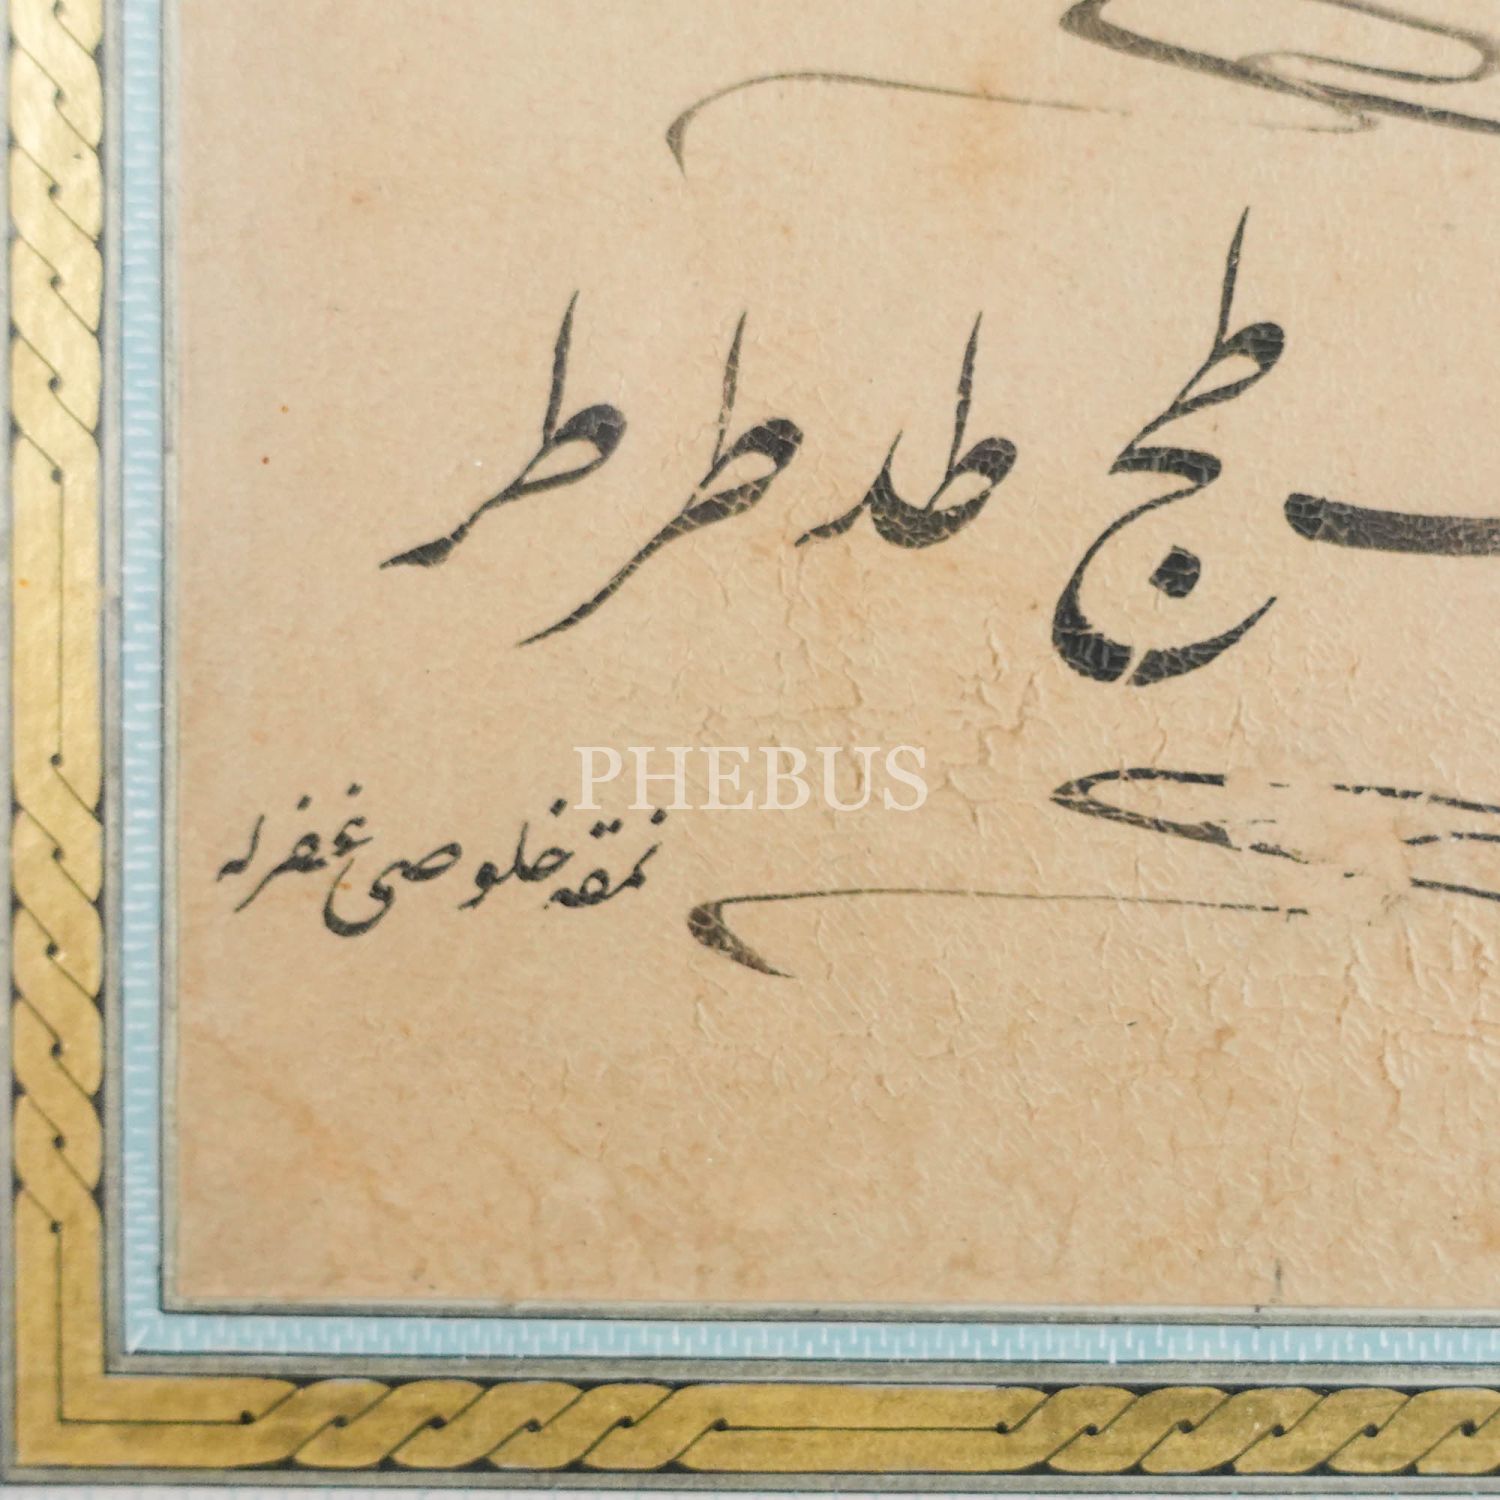 طج طد طر طر
PHEBUS
نمقه خلوصی غفرله